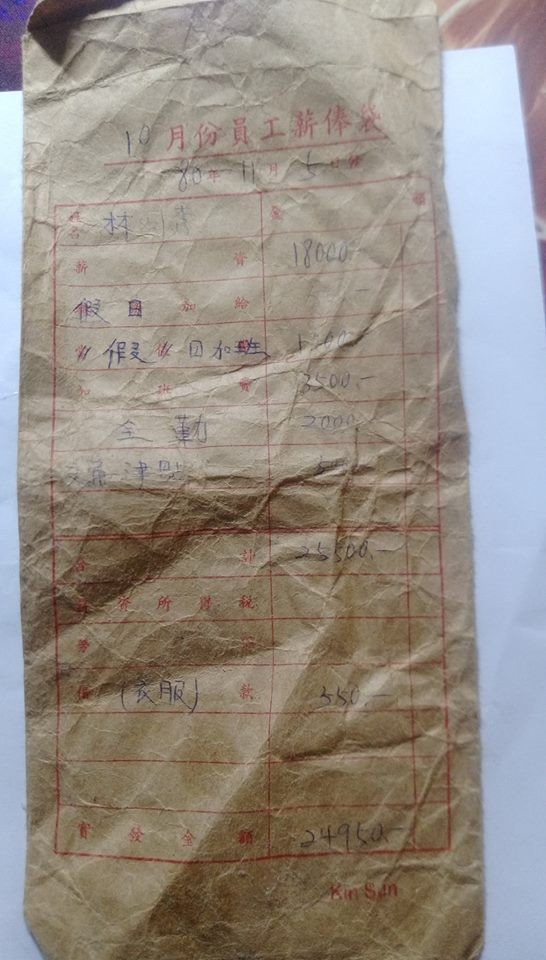 10月份員工薪俸袋
80年11月5日份
姓名 林 金 額
薪 資 18000.-
假日 加 給
假 日加班
加 班 費 3500.-
全勤 2000
交通津貼
合 計 25500.-
薪資所得稅
勞
借 (衣服) 款 550.-
實發金額 24950.-
Kin Sun